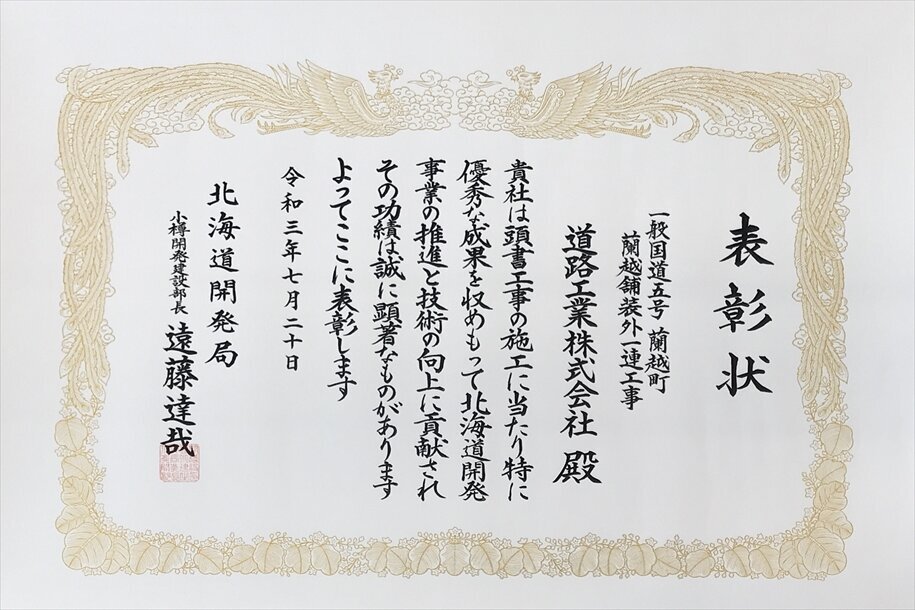 表彰状
一般国道五号 蘭越町
蘭越舗装外一連工事
道路工業株式会社 殿
貴社は頭書工事の施工に当たり特に
優秀な成果を収めもって北海道開発
事業の推進と技術の向上に貢献され
その功績は誠に顕著なものがあります
よってここに表彰します
令和三年七月二十日
北海道開発局
小樽開発建設部長 遠藤達哉